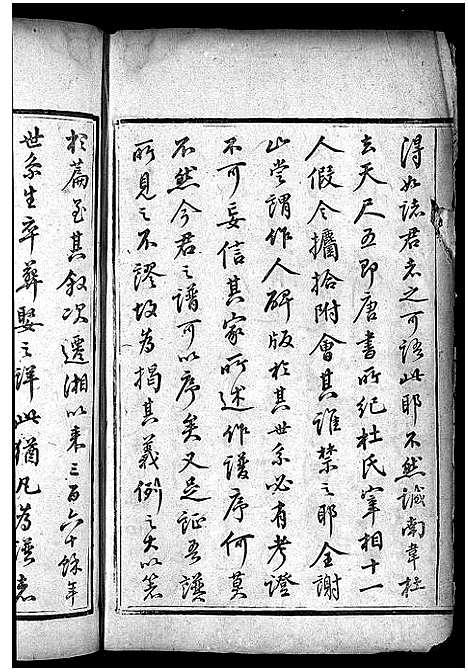 得如諸君者之可語此耶不然誠南韋杜
去天尺五即唐書所紀杜氏宰相十一
人假令攟拾附會其誰禁之耶全謝
山嘗謂作人碑版於其世系必有考證
不可妄信其家所述作譜序何莫
不然今君之譜可以序矣又足証吾讀
所見之不謬故為揭其義例之大以著
於篇至其敘次遷湘以來三百六十餘年
世系生卒葬娶之詳此猶凡為譜者